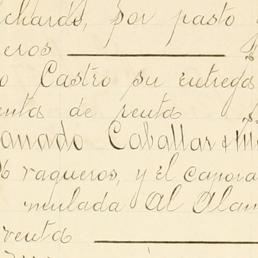 chards, por pasto
eros
o Castro su entrega
enta de renta
anado Caballar y M
s vaqueros, y el capora
mulada al Alam
venta